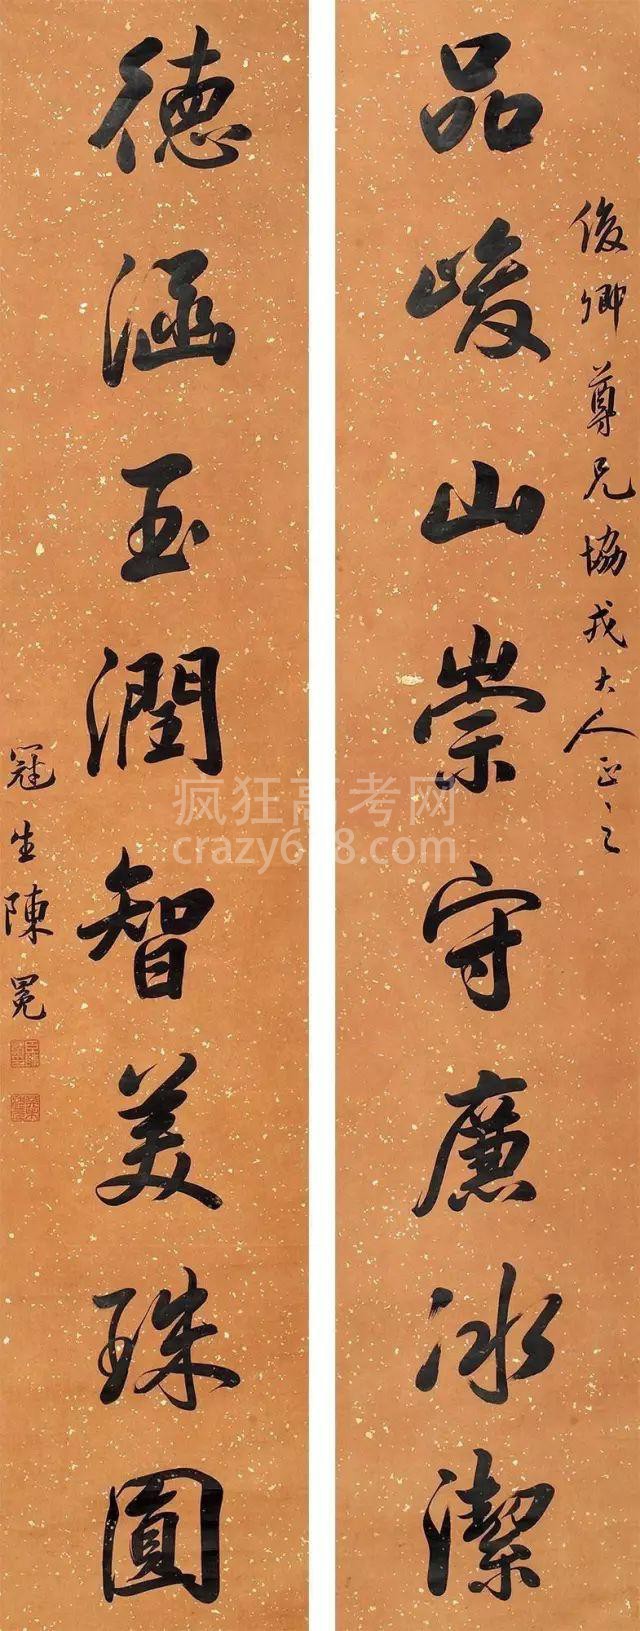 俊卿尊兄協戎大人正之
品峻山崇守廉冰潔
德涵玉潤智美珠圓
冠生陳冕
疯狂高考网
crazy618.com